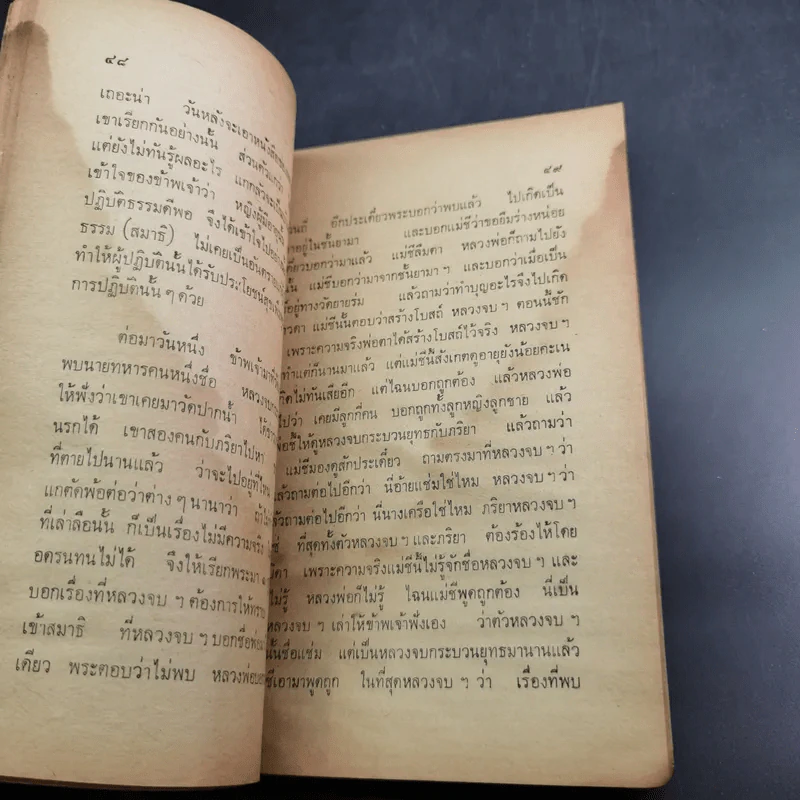 ๔๘
เถอะน่า วันหลังจะเอาหนังสือ
เขาเรียกกันอย่างนั้น ส่วนตัว
แต่ยังไม่ทันรู้ผลอะไร แกกลัวจะ
เข้าใจของข้าพเจ้าว่า หญิงผู้มีอายุ
ปฏิบัติธรรมดีพอ จึงได้เข้าใจไป
ธรรม (สมาธิ) ไม่เคยเป็นอันตราย
ทำให้ผู้ปฏิบัตินั้นได้รับประโยชน์สุข
การปฏิบัตินั้น ๆ ด้วย
ต่อมาวันหนึ่ง ข้าพเจ้ามา
พบนายทหารคนหนึ่งชื่อ หลวงจบ
ให้ฟังว่าเขาเคยมาวัดปากน้ำ ได้
นรกได้ เขาสองคนกับภริยาไปหา
ที่ตายไปนานแล้ว ว่าจะไปอยู่ที่ไหน
แกตัดพ้อต่อว่าต่าง ๆ นานาว่า ถ้า
ที่เล่าลือนั้น ก็เป็นเรื่องไม่มีความจริง
อดรนทนไม่ได้ จึงให้เรียกพระมา
บอกเรื่องที่หลวงจบ ฯ ต้องการให้ทราบ
เข้าสมาธิ ที่หลวงจบ ฯ บอกชื่อพ่อ
เดียว พระตอบว่าไม่พบ หลวงพ่อ
๔๙
อีกประเดี๋ยวพระบอกว่าพบแล้ว ไปเกิดเป็น
อยู่ในชั้นยามา และบอกแม่ชีว่าขอยืมร่างหน่อย
บอกว่ามาแล้ว แม่ชีลืมตา หลวงพ่อก็ถามไปยัง
นั้น แม่ชีบอกว่ามาจากชั้นยามา ฯ และบอกว่าเมื่อเป็น
อยู่ทางวัดยายร่ม แล้วถามว่าทำบุญอะไรจึงไปเกิด
แม่ชีนั้นตอบว่าสร้างโบสถ์ หลวงจบ ฯ ตอนนี้ชัก
เพราะความจริงพ่อตาได้สร้างโบสถ์ไว้จริง หลวงจบ ฯ
ทำแต่ก็นานมาแล้ว แต่แม่ชีนี้สังเกตดูอายุยังน้อยคะเน
เกิดไม่ทันเสียอีก แต่ไฉนบอกถูกต้อง แล้วหลวงพ่อ
ไปว่า เคยมีลูกกี่คน บอกถูกทั้งลูกหญิงลูกชาย แล้ว
ชี้ให้ดูหลวงจบกระบวนยุทธกับภริยา แล้วถามว่า
แม่ชีมองดูสักประเดี๋ยว ถามตรงมาที่หลวงจบ ฯ ว่า
แล้วถามต่อไปอีกว่า นี่อ้ายแช่มใช่ไหม หลวงจบ ฯ ว่า
แล้วถามต่อไปอีกว่า นี่นางเครือใช่ไหม ภริยาหลวงจบ ฯ
ที่สุดทั้งตัวหลวงจบ ฯ และภริยา ต้องร้องไห้โดย
เพราะความจริงแม่ชีนี้ไม่รู้จักชื่อหลวงจบ ฯ และ
ไม่รู้ หลวงพ่อก็ไม่รู้ ไฉนแม่ชีพูดถูกต้อง นี่เป็น
หลวงจบ ฯ เล่าให้ข้าพเจ้าฟังเอง ว่าตัวหลวงจบ ฯ
นั้นชื่อแช่ม แต่เป็นหลวงจบกระบวนยุทธมานานแล้ว
ชีเอามาพูดถูก ในที่สุดหลวงจบ ฯ ว่า เรื่องที่พบ